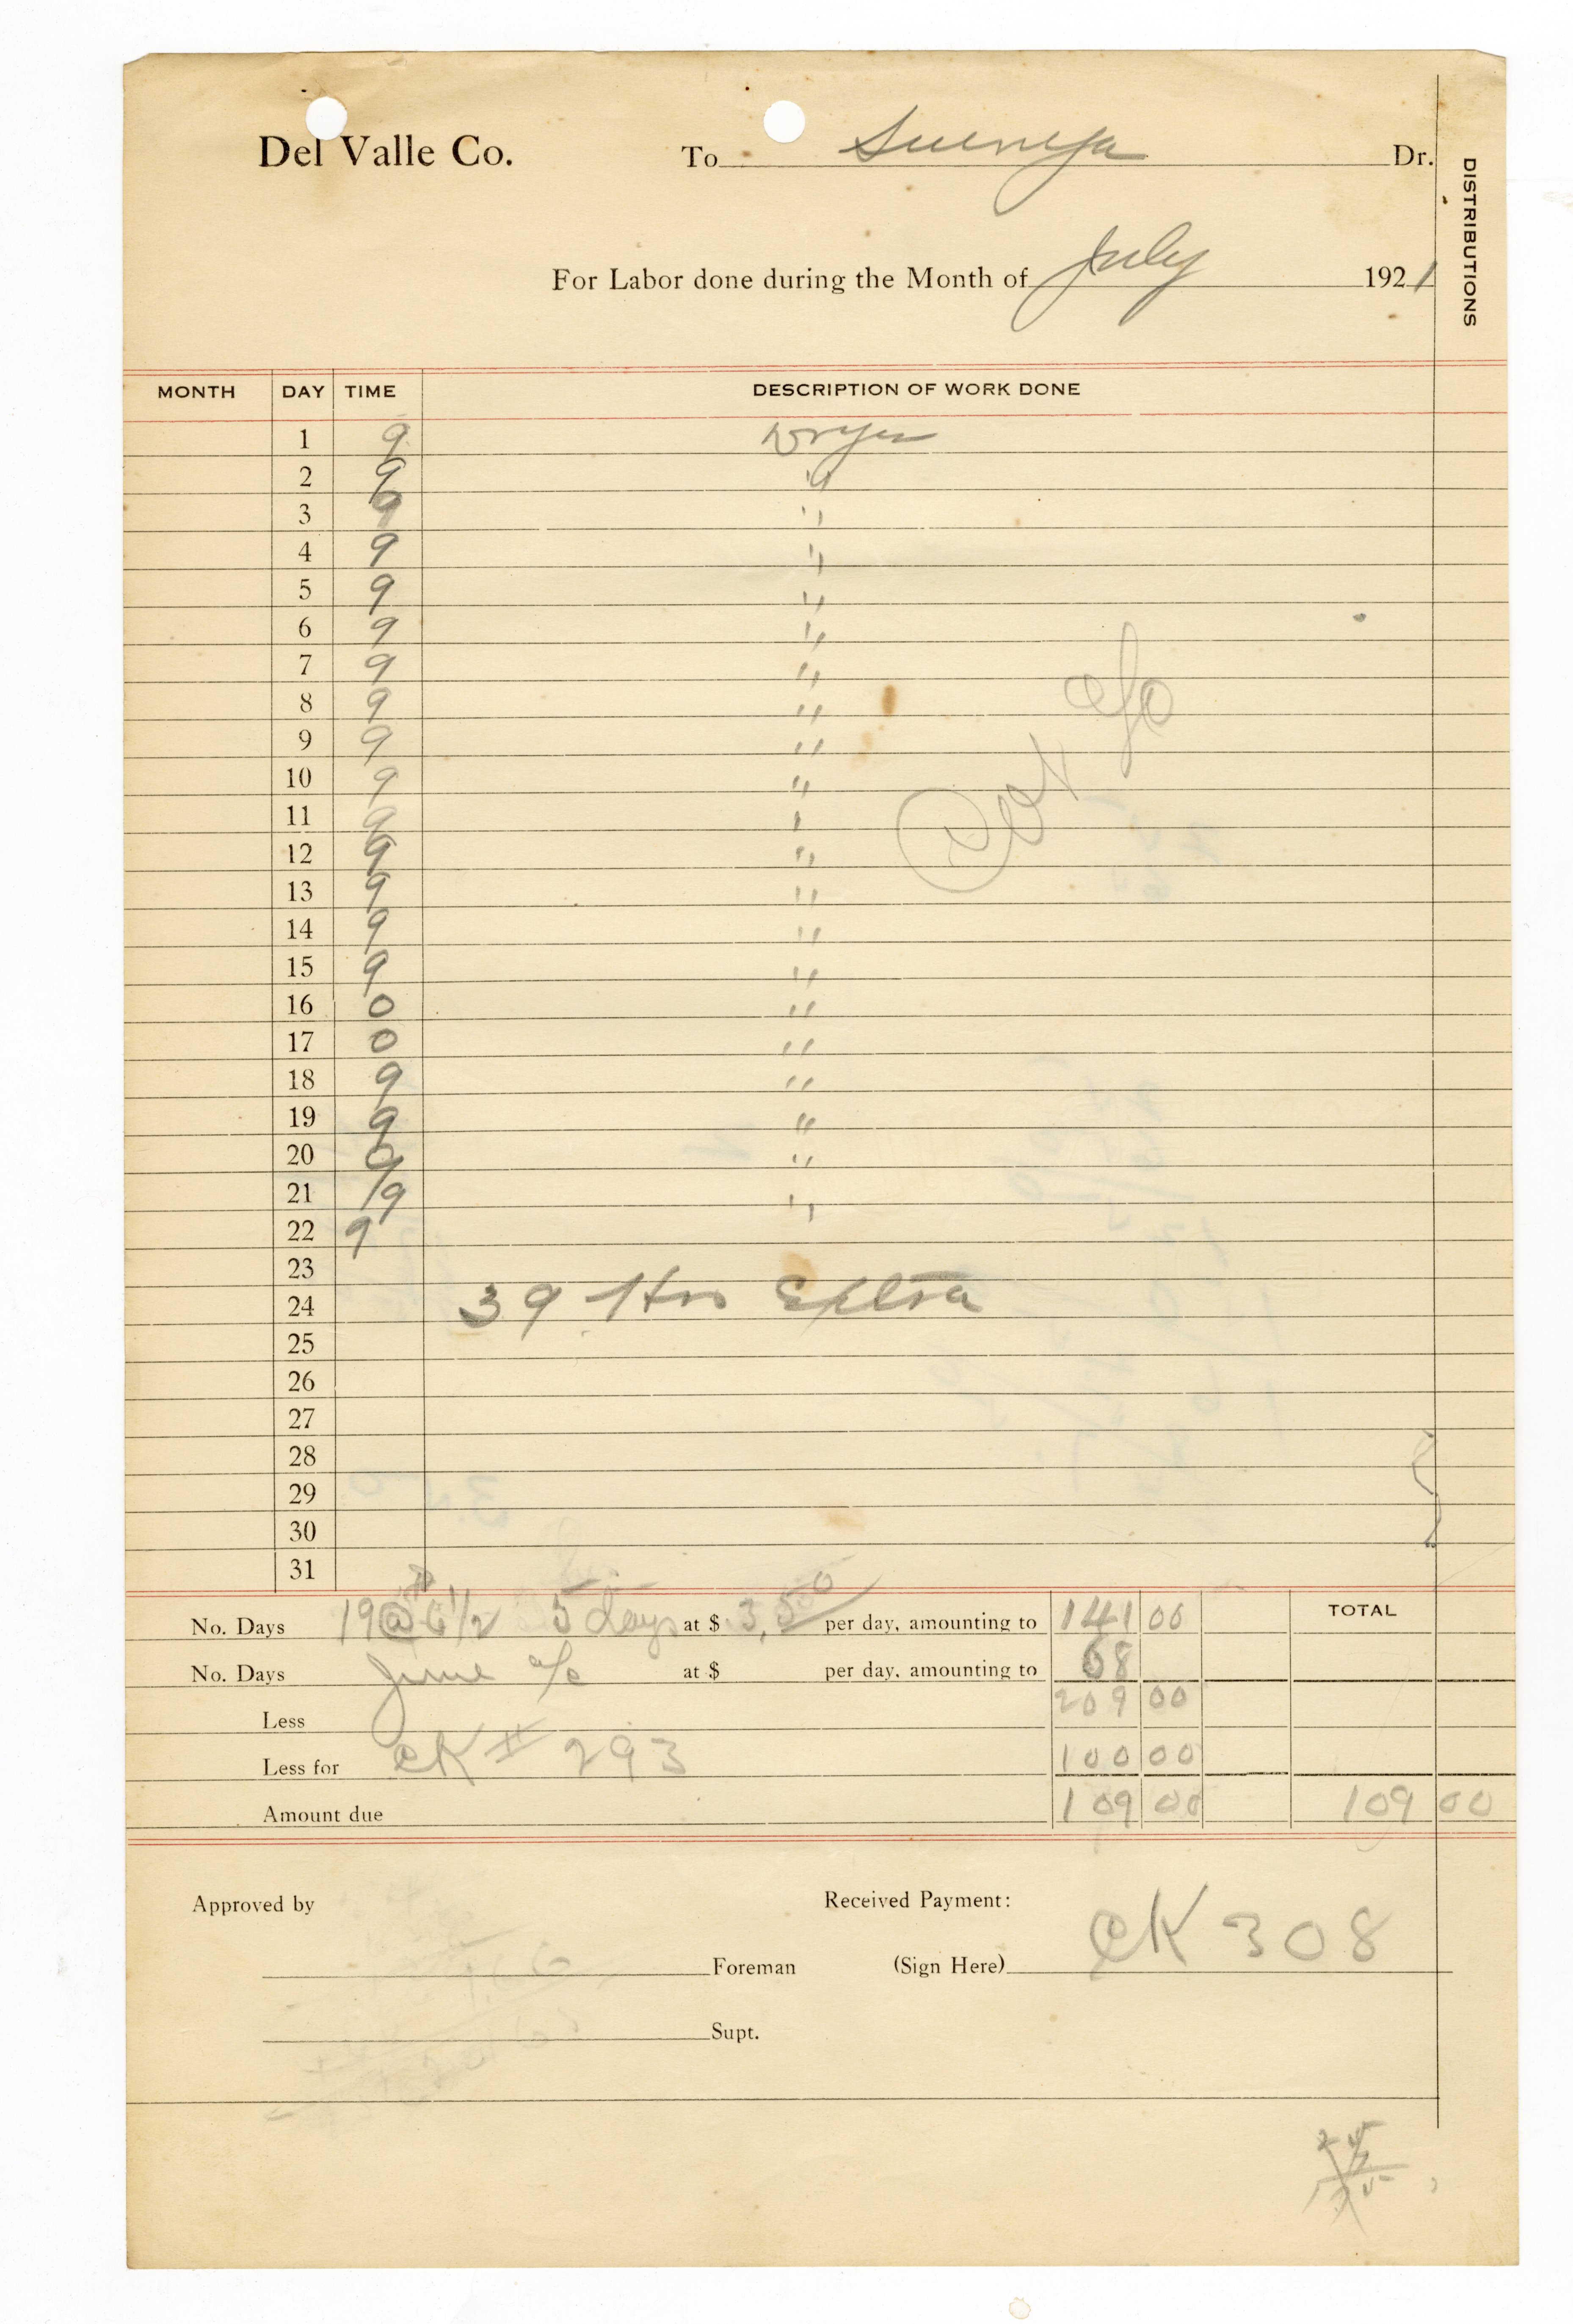 Del Valle Co. To Dr.
For Labor done during the Month of July 1921
DISTRIBUTIONS
MONTH DAY TIME DESCRIPTION OF WORK DONE
1 9 Dryer
2 9 "
3 9 "
4 9 "
5 9 "
6 9 "
7 9 "
8 9 "
9 9 "
10 9 "
11 9 "
12 9 "
13 9 "
14 9 "
15 9 "
16 0 "
17 0 "
18 9 "
19 9 "
20 0 "
21 9 "
22 9
23
24 39 Hrs Extra
25
26
27
28
29
30
31
No. Days 19 @ 6 1/2 5 days at $ 3,50 per day, amounting to 141 00 TOTAL
No. Days June a/c at $ per day, amounting to 68
Less 209 00
Less for CK # 293 100 00
Amount due 109 00 109 00
Approved by Received Payment:
Foreman (Sign Here) CK 308
Supt.